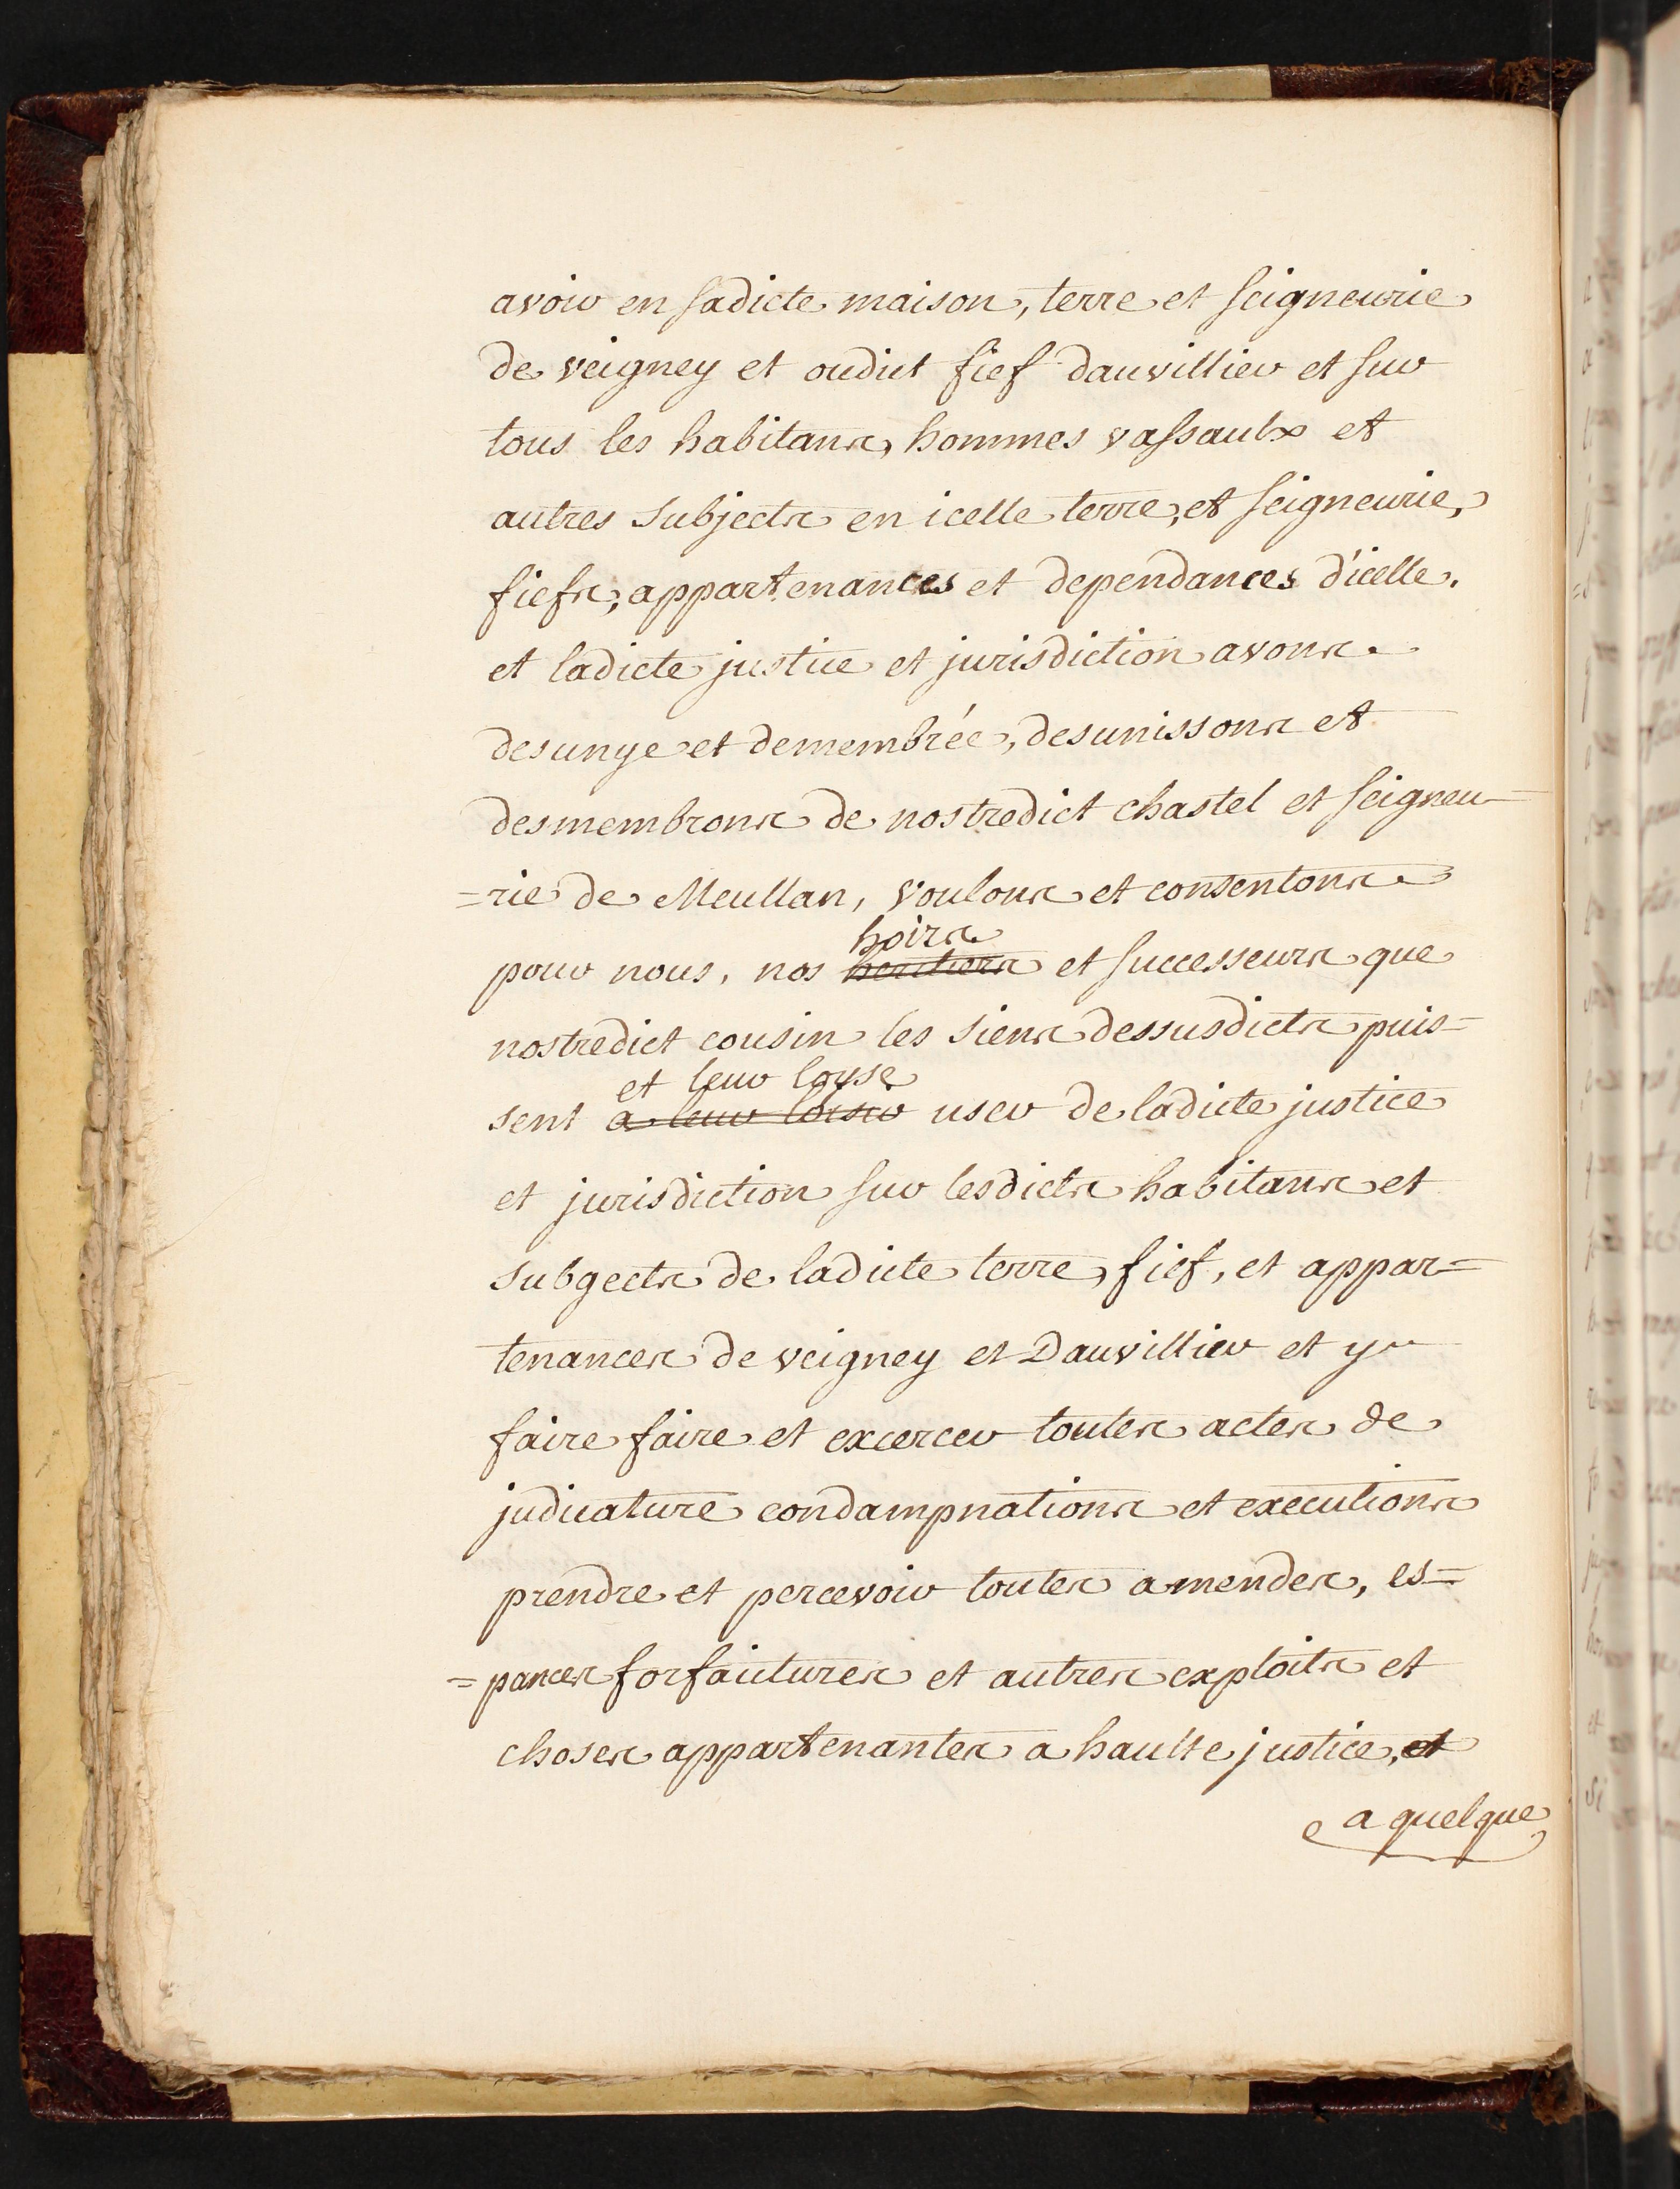 avoir en sadicte maison, terre et seigneurie
de veigney et oudict fief dauvillier et sur
tous les habitans, hommes vassaulx et
autres subjects en icelle terre, et seigneurie,
fiefs, appartenances et dependances d'icelle.
et ladicte justice et jurisdiction avons
desunye et demembrée, desunissons et
desmembrons de nostredict chastel et seigneu-
=rie de Meullan, voulons et consentons
hoirs
pour nous, nos heritiers et successeurs que
nostredict cousin les siens dessusdicts puis=
et leur loyse
sent a leur loisir user de ladicte justice
et jurisdiction sur lesdicts habitans et
subgects de ladicte terre, fief, et appar=
tenances de veigney et Dauvillier et y
faire faire et excercer toutes actes de
judicature condampnations et executions
prendre et percevoir toutes amendes, es=
=pances forfaictures et autres exploits et
choses appartenantes a haulte justice, et
a quelque